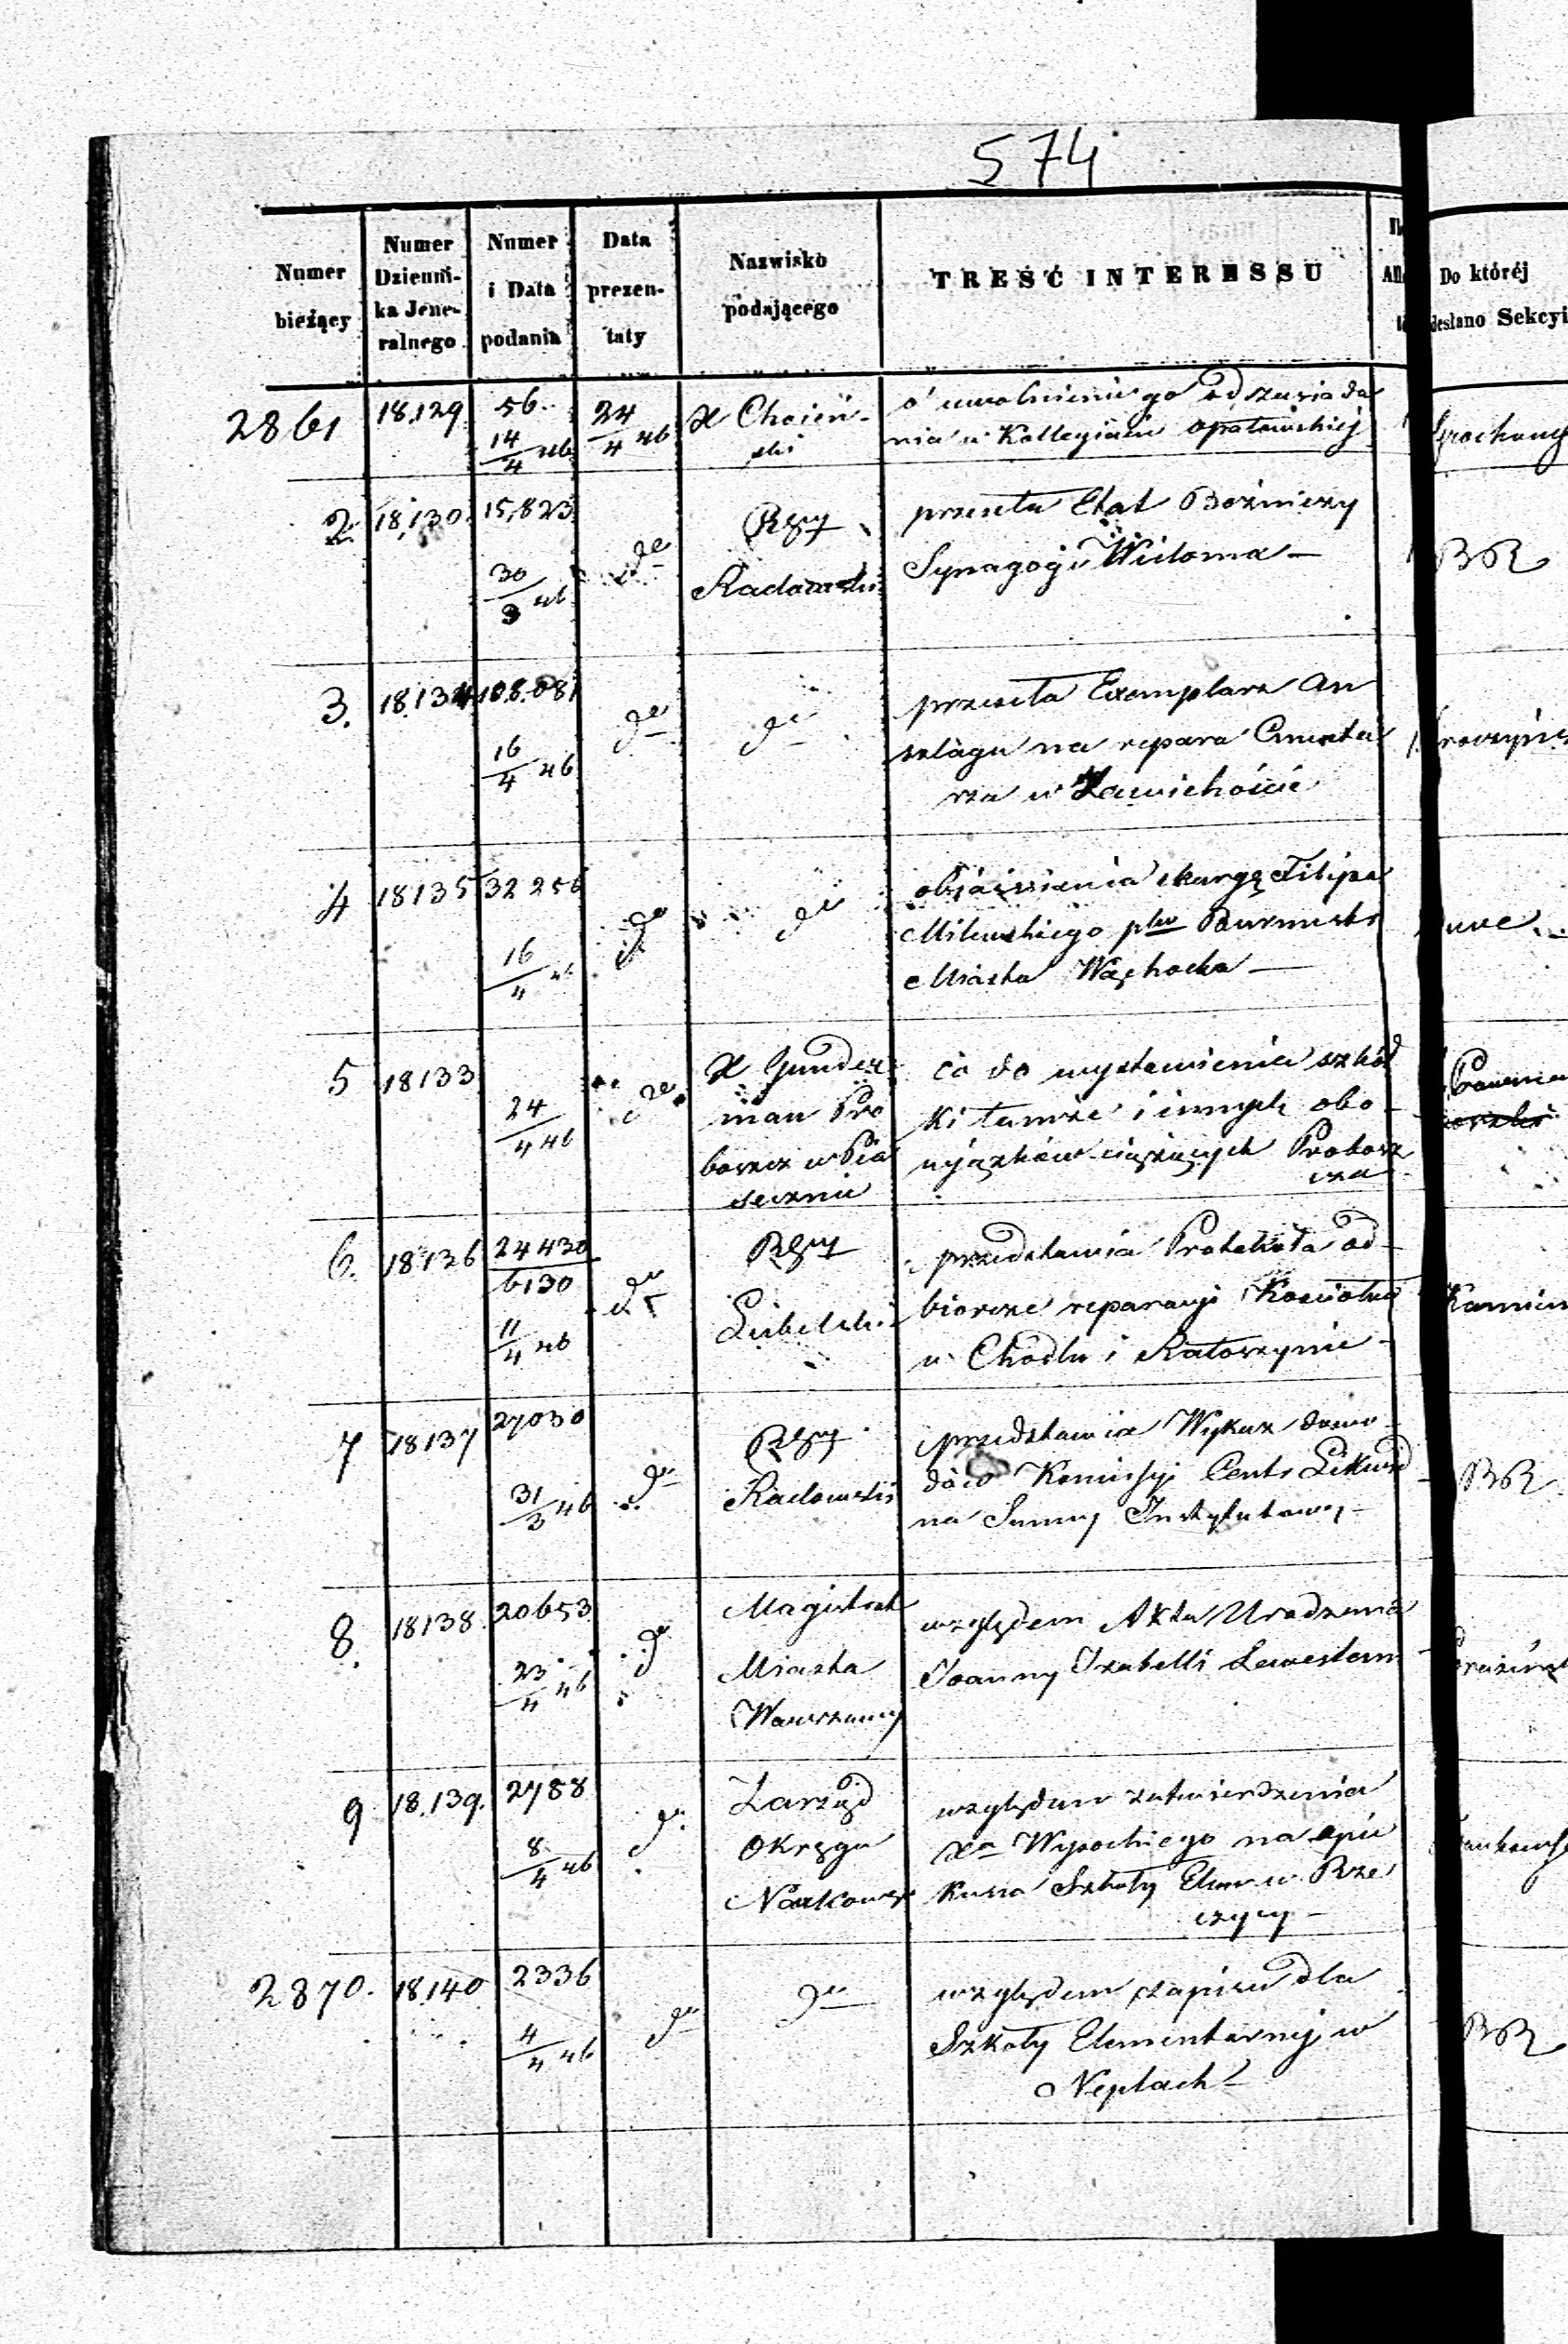 574
Numer bieżący
Numer Dzienni-ka Jene-ralnego
Numer i Data podania
Data prezen-taty
Nazwisko podającego
TREŚĆ INTERESSU
Do któréj
desłano Sekcyi
2861 18,129 56. 14/4 46 24/4 46 X Choień-
ski
o uwolnienie go od zasiada
nia w Kollegiacie opatowskiéj
2. 18,130. 15,823 30/3 46 do Rząd
Radomski
przesyła Etat Bożniczy
Synagogi Widoma — BR
3. 18.134 108.081 16/4 46 do do
przesyła Exemplarz an
szlagu na repara Cmenta
rza w Zawichoście
4 18135 32256 16/4 46 do do
objaśnienia skargę Filipa
Milewskiego płw Burmistr
Miasta Wąchocka —
5 18133 24/4 46 do X Gunder
man Pro
boszcz w Pia
secznie
co do wystawienia szkół
ki tamże i innych obo-
wiązków ciążących Probosz
cza
6. 18136 24430/6130 11/4 46 do Rząd
Lubelski
przedstawia Protokoła od-
biorcze reparacyi Kościołów
w Chodlu i Ratoszynie -
7 18137 27030 31/3 46 do Rząd
Radomski
przedstawia Wykaz dowo-
dów Komissyi Centr Likwid
na Summy Instytutowe - BR
8. 18138. 20653 23/4 46 do Magistrat
Miasta
Warszawy
względem Akta Urodzenia
Joanny Izabelli Lewestam
9 18.139. 2788 8/4 46 do Zarząd
Okręgu
Naukowego
względem zatwierdzenia
Xa Wysockiego na opie
kuna Szkoły Elem w Rze
czycy -
2870. 18.140 2336 4/4 46 do do
względem zapisu dla
Szkoły Elementarnej w
Neplach - BR